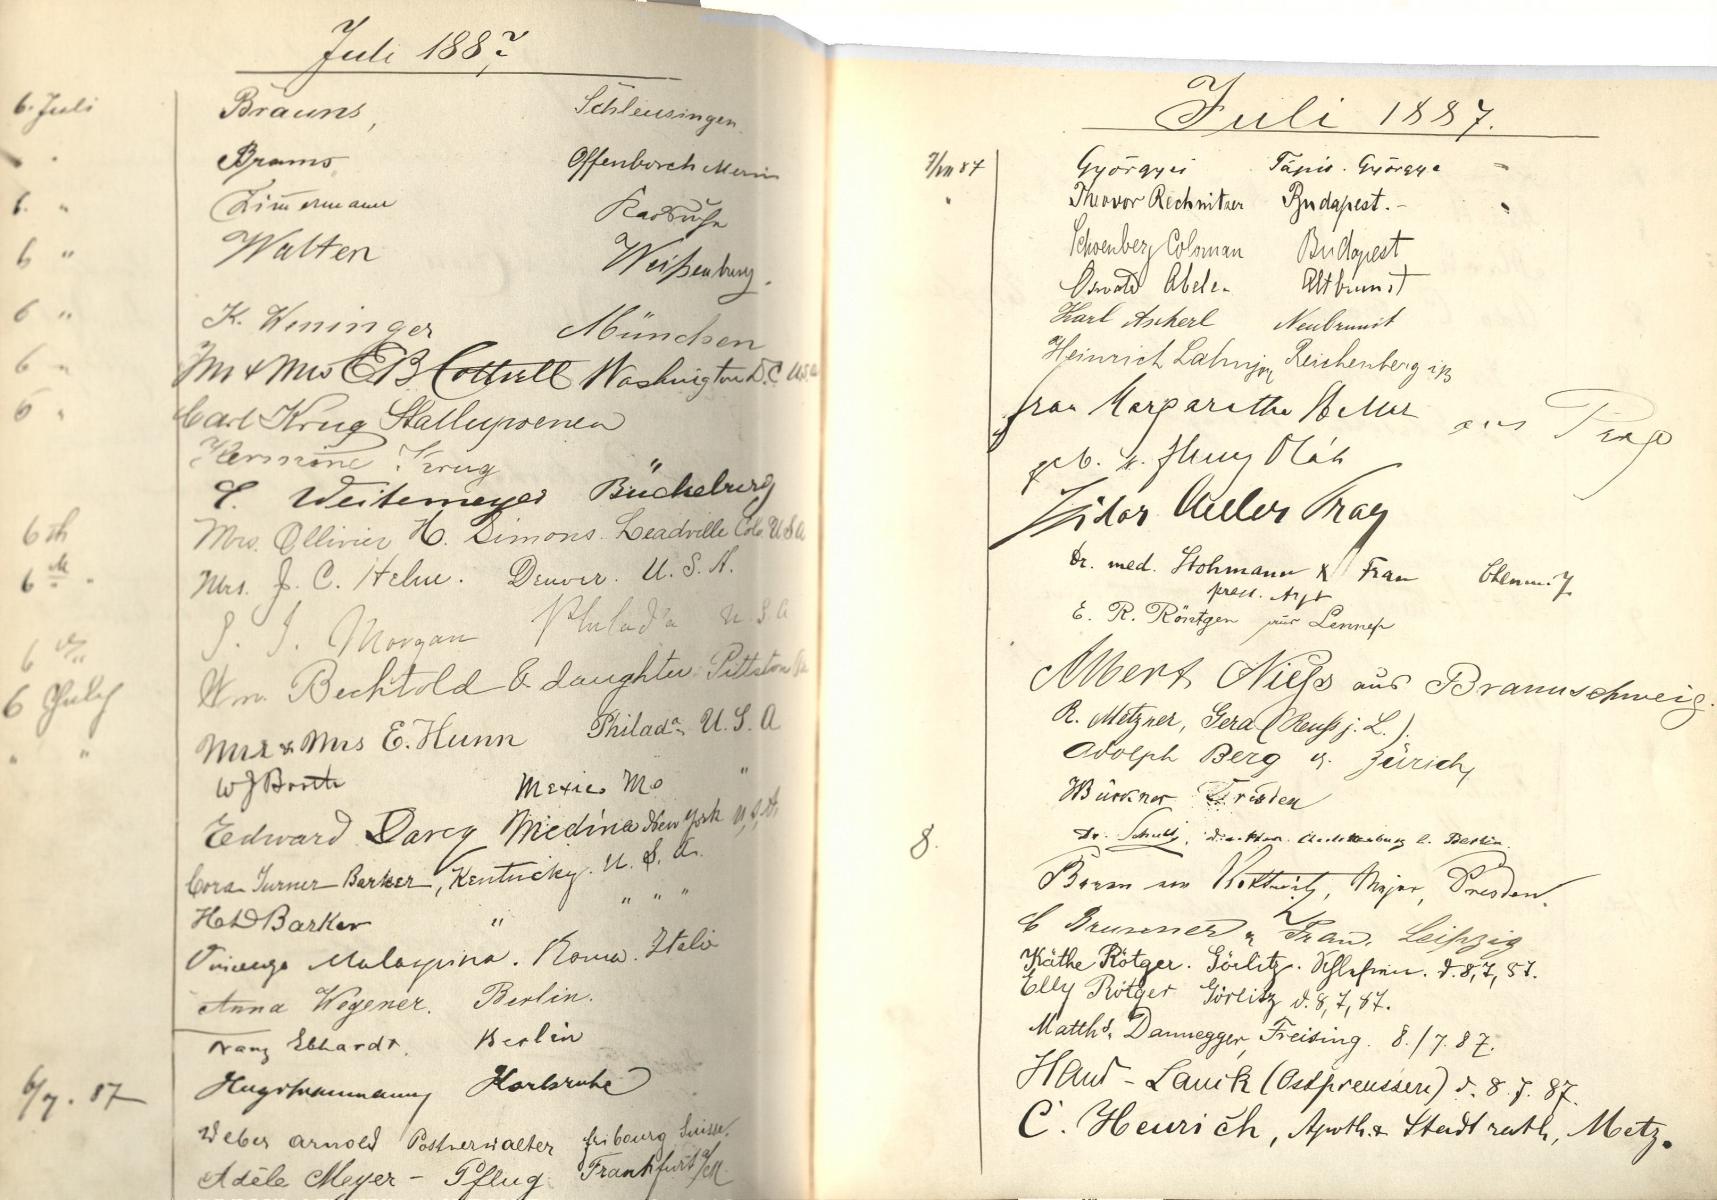 Juli 1887
6. Juli Brauns, Schleusingen
Brams
6. " Zimmermann
6 " Walter Weißenburg.
6 " K. Weninger München
6 " Mr & Mrs E B Cottrell Washington D.C. U.S.A
6 " Carl Krug Stallupoenen
Hermine Krug
Weitemeyer Bückeburg
6th Mrs. Ollivier H. Simons. Leadville Colo. U S A
6 " Mrs. J. C. Helm. Denver. U. S. A.
Morgan Philada U S A
6 July Wm. Bechtold & daughter Pittston
" " Mr & Mrs E. Hunn Philada U. S. A
W J Booth Mexico Mo "
Edward Darcy Medina New York U, S, A.
Cora Turner Barker, Kentucky. U. S. A.
Barker " " " "
Vincenzo Malaspina. Roma. Italie
Anna Wegener. Berlin.
Franz Ebhardt. Berlin
6/7. 87 Karlsruhe
Weber Arnold Postverwalter fribourg Suisse.
Adèle Meyer - Pflug Frankfurt a/M
Juli 1887.
7/VII 87 Györgyei Tápió. Györgye
" Theodor Rechnitzer Budapest. -
Schoenberg Coloman Budapest
Oswald Abele.
Karl Ankerl
Heinrich Reichenberg i/B
frau Margarethe Heller aus Prag
geb. v.
Isidor Heller Prag
Dr. med. Stohmann & Frau
pract. Arzt
E. R. Röntgen aus Lennep
Albert Nieß aus Braunschweig.
R. Metzner, Gera (Reuß j. L.)
Adolph Berg Zürich
Bürkner Dresden
8. Dr. Schultz, Direktor. Charlottenburg b. Berlin.
Major, Dresden.
C Brunner u Frau. Leipzig
Käthe Rötger. Görlitz. Schlesien. d. 8, 7, 87.
Elly Rötger Görlitz d. 8, 7, 87.
Matths. Dannegger, Freising. 8./7. 87.
(Ostpreussen) d. 8. 7. 87.
C. Heurich, Apoth. & Stadtrath, Metz.